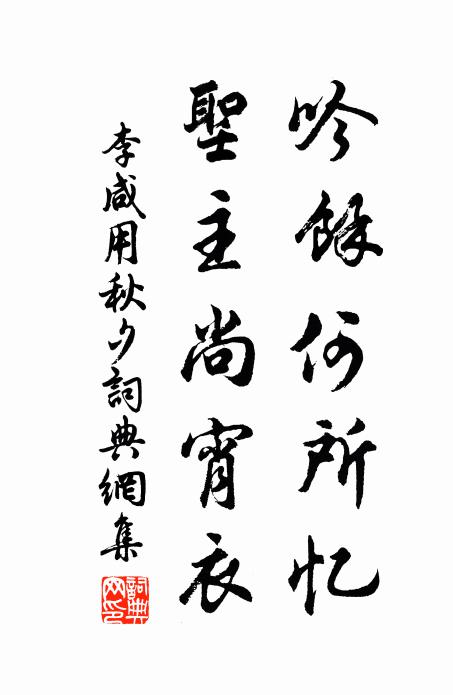 吟餘何所忆
聖主尚宵衣
李咸用秋夕詞典網集
詞典網印